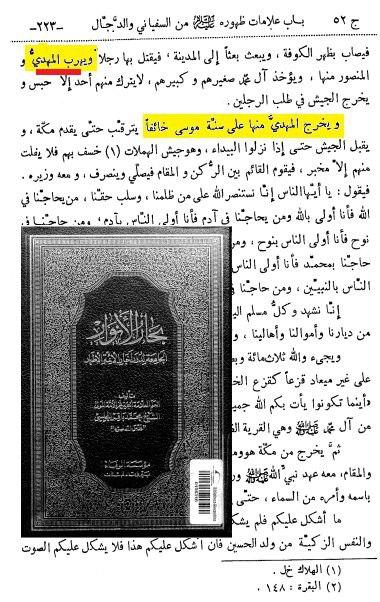 ج ٥٢
باب علامات ظهوره ﷺ من السفياني والدجّال
-٢٢٣-
فيصاب بظهر الكوفة ، ويبعث بعثاً إلى المدينة ، فيقتل بها رجلاً ويهرب المهديُّ و
المنصور منها ، ويؤخذ آل محمد صغيرهم و كبيرهم ، لا يترك منهم أحد إلاّ حبس و
يخرج الجيش في طلب الرجلين .
و يخرج المهديُّ منها على سنّة موسى خائفاً يترقّب حتّى يقدم مكّة ، و
يقبل الجيش حتّى إذا نزلوا البيداء ، وهو جيش الهملات (١) خسف بهم فلا يفلت
منهم إلاّ مخبر ، فيقوم القائم بين الرُّكن و المقام فيصلّي وينصرف ، و معه وزيره .
فيقول : يا أيّها الناس إنّا نستنصر الله على من ظلمنا ، وسلب حقّنا ، من يحاجّنا
في الله فأنا أولى بالله ومن يحاجّنا في آدم فأنا أولى النّاس بآدم ، ومن حاجّنا في
نوح فأنا أولى الناس بنوح ، و
حاجّنا بمحمّد فأنا أولى
النّاس بالنبيّين ، و من حاجّنا
إنّا نشهد و كلُّ مسلم الي
من ديارنا و أموالنا و أهالينا ، و
ويجيء والله ثلاثمائة و
على غير ميعاد قزعاً كقزع الخ
« أينما تكونوا يأت بكم الله ج
من آل محمّد ﷺ وهي القرية الـ
ثمَّ يخرج من مكّة هو ومـ
والمقام ، معه عهد نبيِّ الله ﷺ ور
باسمه وأمره من السماء ، حتّى
ما أشكل عليكم فلم يشكـ
والنفس الزكيّة من ولد الحسين فان أشكل عليكم هذا فلا يشكل عليكم الصوت
(١) الهلاك خ ل .
(٢) البقرة : ١٤٨ .
بحار الأنوار
الجامعة لدرر أخبار الأئمة الأطهار
مؤسسة الوفاء
بيروت - لبنان